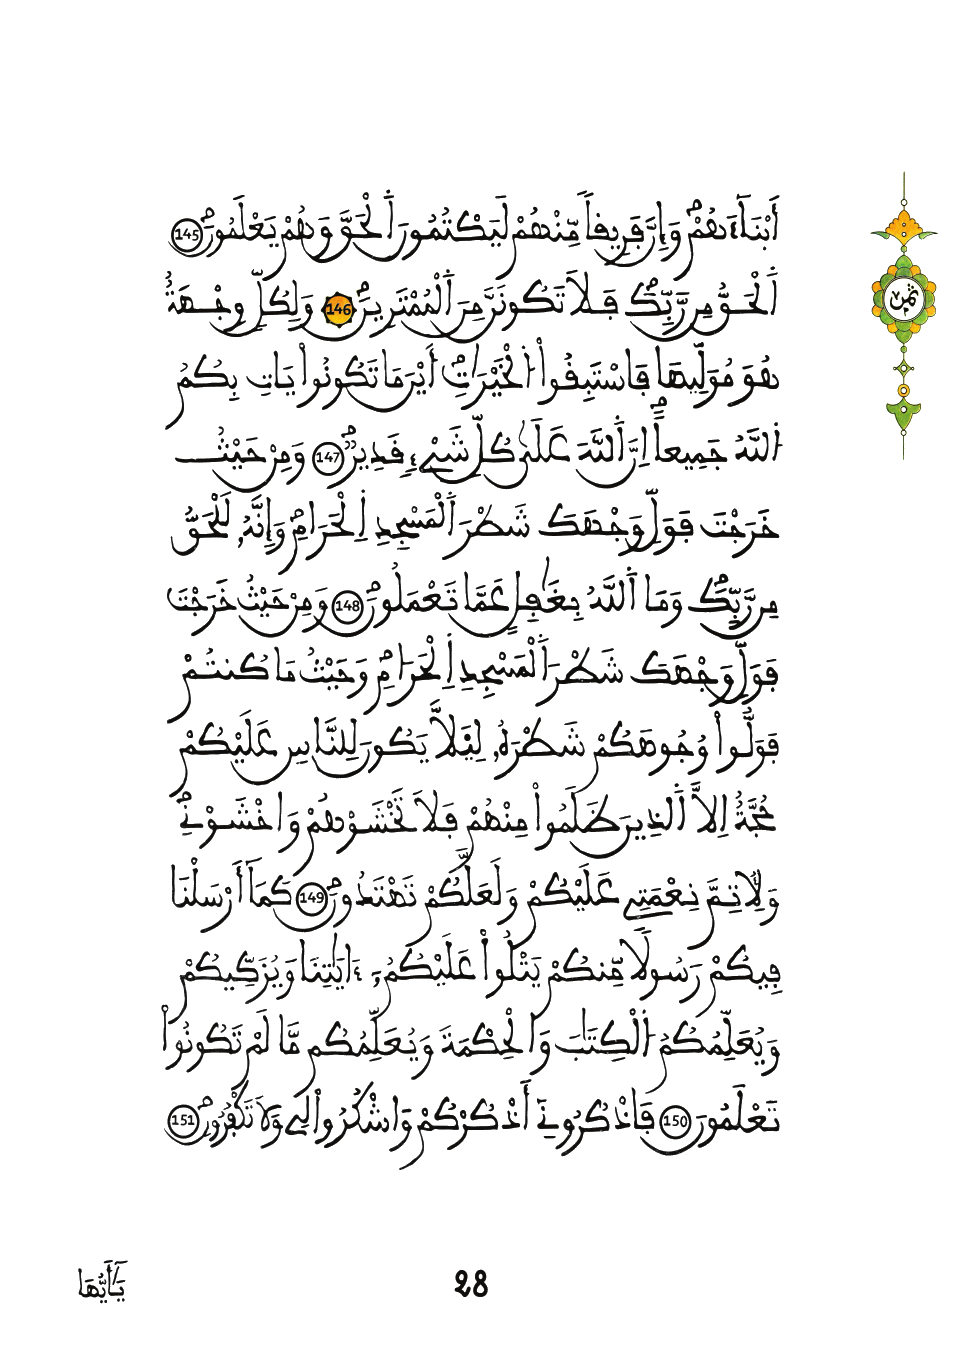 أَبْنَآءَهُمْ وَإِنَّ فَرِيقاٗ مِّنْهُمْ لَيَكْتُمُونَ اَ۬لْحَقَّ وَهُمْ يَعْلَمُونَۖ 145
ثمن
اَ۬لْحَقُّ مِن رَّبِّكَۖ فَلَا تَكُونَنَّ مِنَ اَ۬لْمُمْتَرِينَۖ 146 وَلِكُلّٖ وِجْهَةٌ
هُوَ مُوَلِّيهَا فَاسْتَبِقُواْ اُ۬لْخَيْرَٰتِۖ أَيْنَ مَا تَكُونُواْ يَاتِ بِكُمُ
اُ۬للَّهُ جَمِيعاًۖ اِنَّ اَ۬للَّهَ عَلَىٰ كُلِّ شَےْءٖ قَدِيرٞۖ 147 وَمِنْ حَيْثُ
خَرَجْتَ فَوَلِّ وَجْهَكَ شَطْرَ اَ۬لْمَسْجِدِ اِ۬لْحَرَامِۖ وَإِنَّهُۥ لَلْحَقُّ
مِن رَّبِّكَۖ وَمَا اَ۬للَّهُ بِغَٰفِلٍ عَمَّا تَعْمَلُونَۖ 148 وَمِنْ حَيْثُ خَرَجْتَ
فَوَلِّ وَجْهَكَ شَطْرَ اَ۬لْمَسْجِدِ اِ۬لْحَرَامِۖ وَحَيْثُ مَا كُنتُمْ
فَوَلُّواْ وُجُوهَكُمْ شَطْرَهُۥ لِيَ۬لَّا يَكُونَ لِلنَّاسِ عَلَيْكُمْ
حُجَّةٌ اِلَّا اَ۬لذِينَ ظَلَمُواْ مِنْهُمْ فَلَا تَخْشَوْهُمْ وَاخْشَوْنِےۖ
وَلِأُتِمَّ نِعْمَتِے عَلَيْكُمْ وَلَعَلَّكُمْ تَهْتَدُونَۖ 149 كَمَآ أَرْسَلْنَا
فِيكُمْ رَسُولاٗ مِّنكُمْ يَتْلُواْ عَلَيْكُمُۥٓ ءَايَٰتِنَا وَيُزَكِّيكُمْ
وَيُعَلِّمُكُمُ اُ۬لْكِتَٰبَ وَالْحِكْمَةَ وَيُعَلِّمُكُم مَّا لَمْ تَكُونُواْ
تَعْلَمُونَ 150 فَاذْكُرُونِےٓ أَذْكُرْكُمْ وَاشْكُرُواْ لِے وَلَا تَكْفُرُونِۖ 151
28
يَٰٓأَيُّهَا